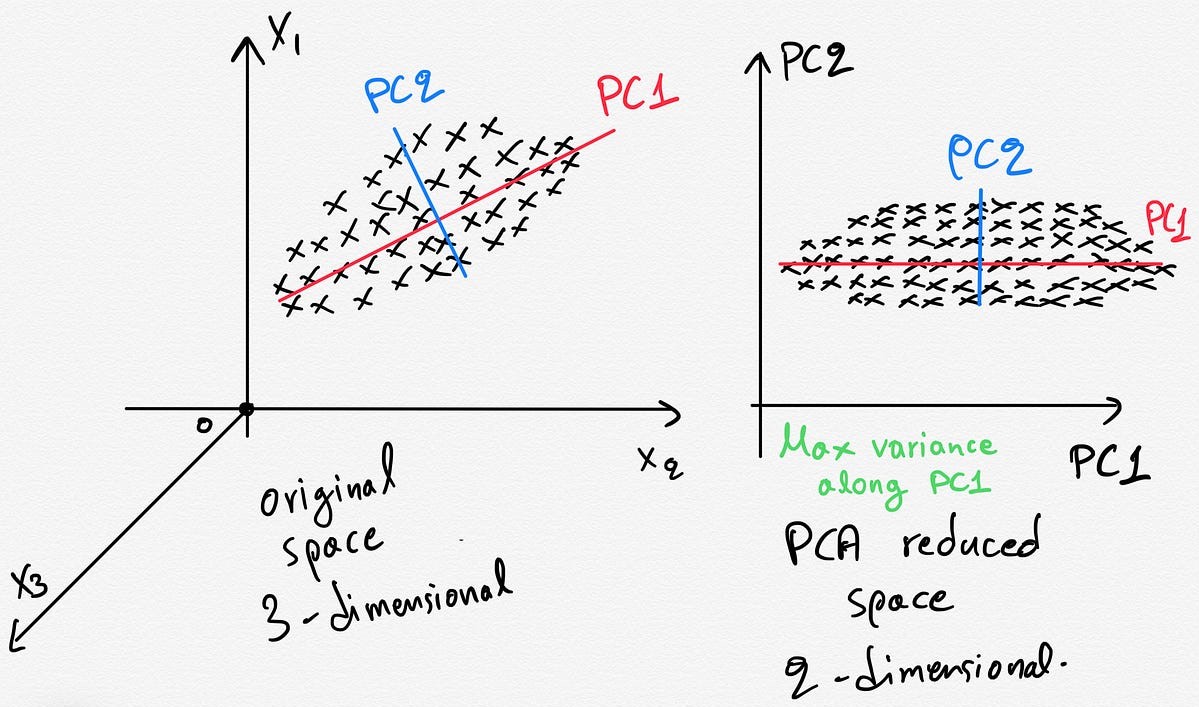 X1
PC2
PC1
O
X2
X3
original
space
3-dimensional
PC2
PC2
PC1
PC1
Max variance
along PC1
PCA reduced
space
2-dimensional.